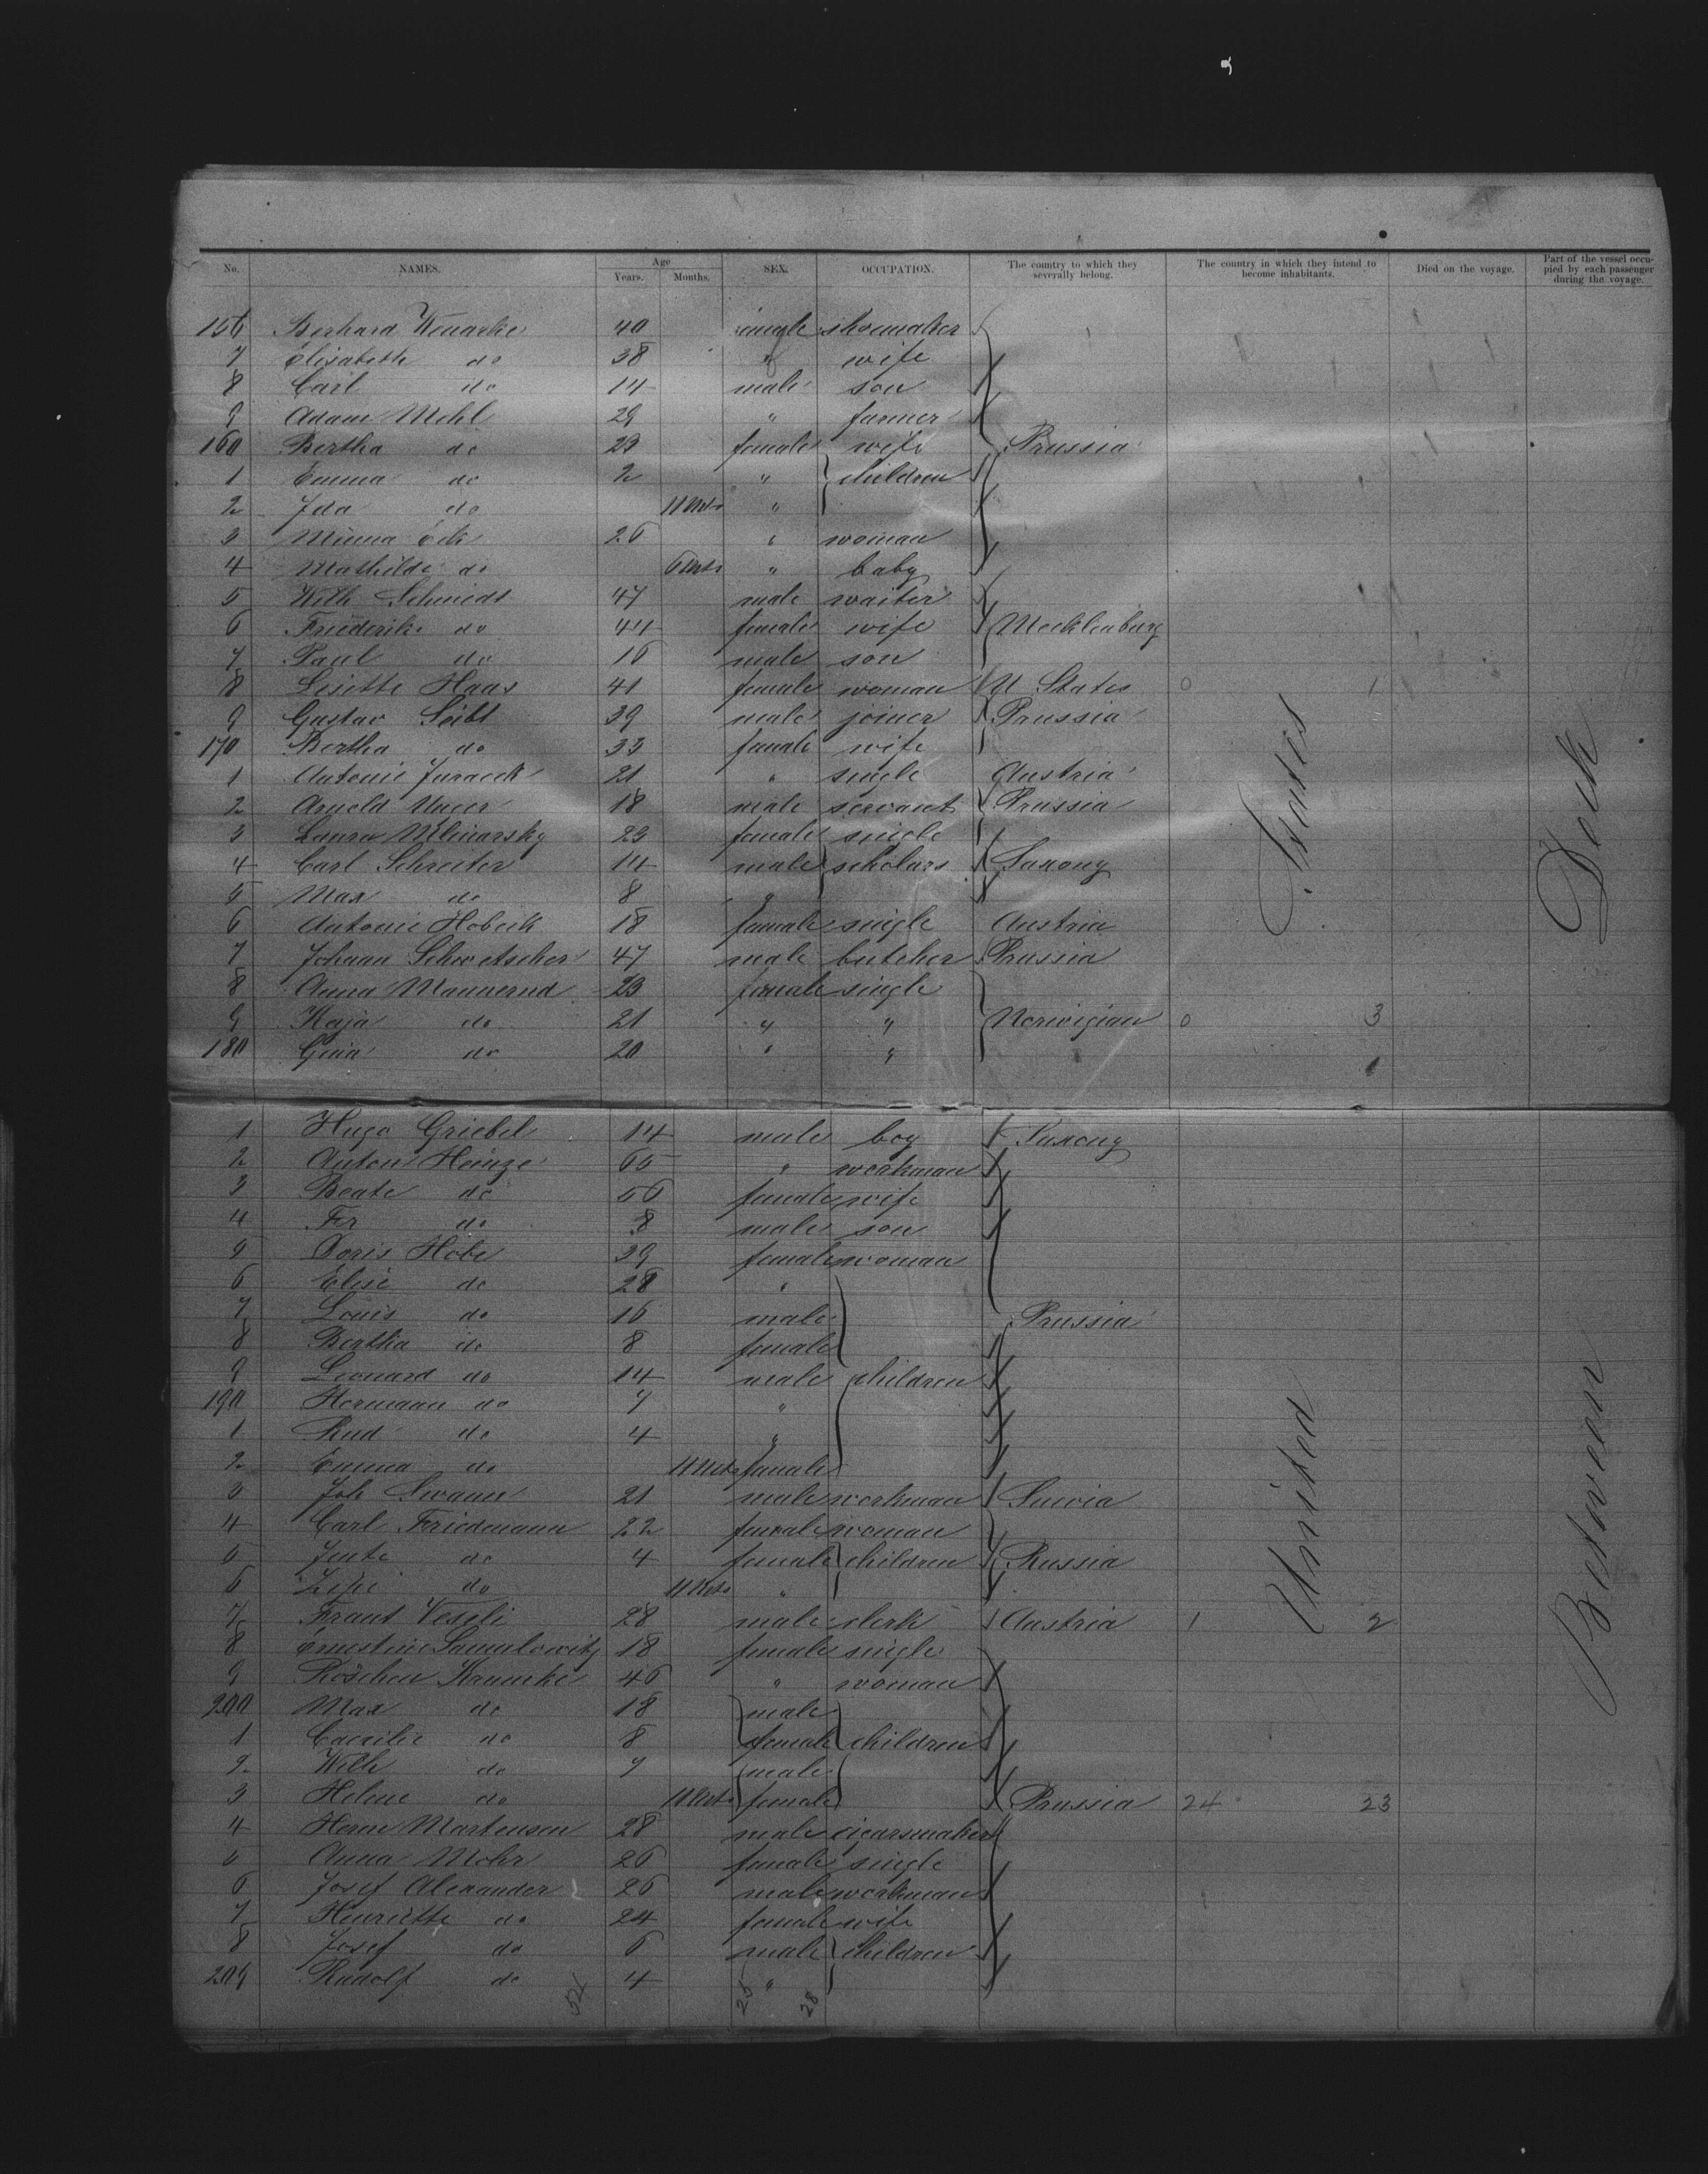 No. NAMES. Age Years. Months. SEX. OCCUPATION. The country to which they severally belong. The country in which they intend to become inhabitants. Died on the voyage. Part of the vessel occupied by each passenger during the voyage.
156 40 shoemaker
7 Elisabeth do 38 " wife
8 Carl do 14 male son
9 Adam Mehl 29 " farmer
160 Bertha do 23 female wife Prussia
1 Emma do 2 " children
2 Ida do 11 Mts "
3 Minna 26 " woman
4 Mathilde do 6 Mts " baby
5 Wilh Schmidt 47 male waiter
6 Friederike do 44 female wife Mecklenburg
7 Paul do 16 male son
8 Lisette Haas 41 female woman U States 0 1
9 Gustav Seibt 39 male joiner Prussia
170 Bertha do 33 female wife
1 Antonie Juracek 21 " single Austria
2 Arnold 18 male servant Prussia
3 Laura Mlinarsky 23 female single
4 Carl Schreiter 14 male scholars Saxony
5 Max do 8 "
6 Antonie Hobeck 18 female single Austria
7 Johann Schwetscher 47 male butcher Prussia
8 Anna 23 female single
9 Kaja do 21 " " Norwigian 0 3
180 Gina do 20 " "
1 Hugo Griebel 14 male boy Saxony
2 Anton Heinze 65 " workman
3 Beate do 56 female wife
4 Fr do 8 male son
5 Doris Hobe 39 female woman
6 Elise do 28 "
7 Louis do 16 male Prussia
8 Bertha do 8 female
9 Leonard do 14 male children
190 Hermann do 7 "
1 Rud do 4 "
2 Emma do 11 Mts female
3 Joh Swann 21 male workman
4 Carl Friedmann 22 female woman
5 Jente do 4 female children Russia
6 do 11 Mts "
7 Frant Veseli 28 male clerk Austria 1 2
8 Ernestine Samulowitz 18 female single
9 Röschen Kramke 46 " woman
200 Max do 18 male
1 Caecilie do 8 female children
2 Wilh do 7 male
3 Helene do 11 Mts female Prussia 24 23
4 Herm Martensen 28 male cigarsmaker
5 Anna Mohr 26 female single
6 Josef Alexander 26 male workman
7 Henriette do 24 female wife
8 Josef do 6 male children
209 Rudolf do 4 "
52 28
United States
Between Deck